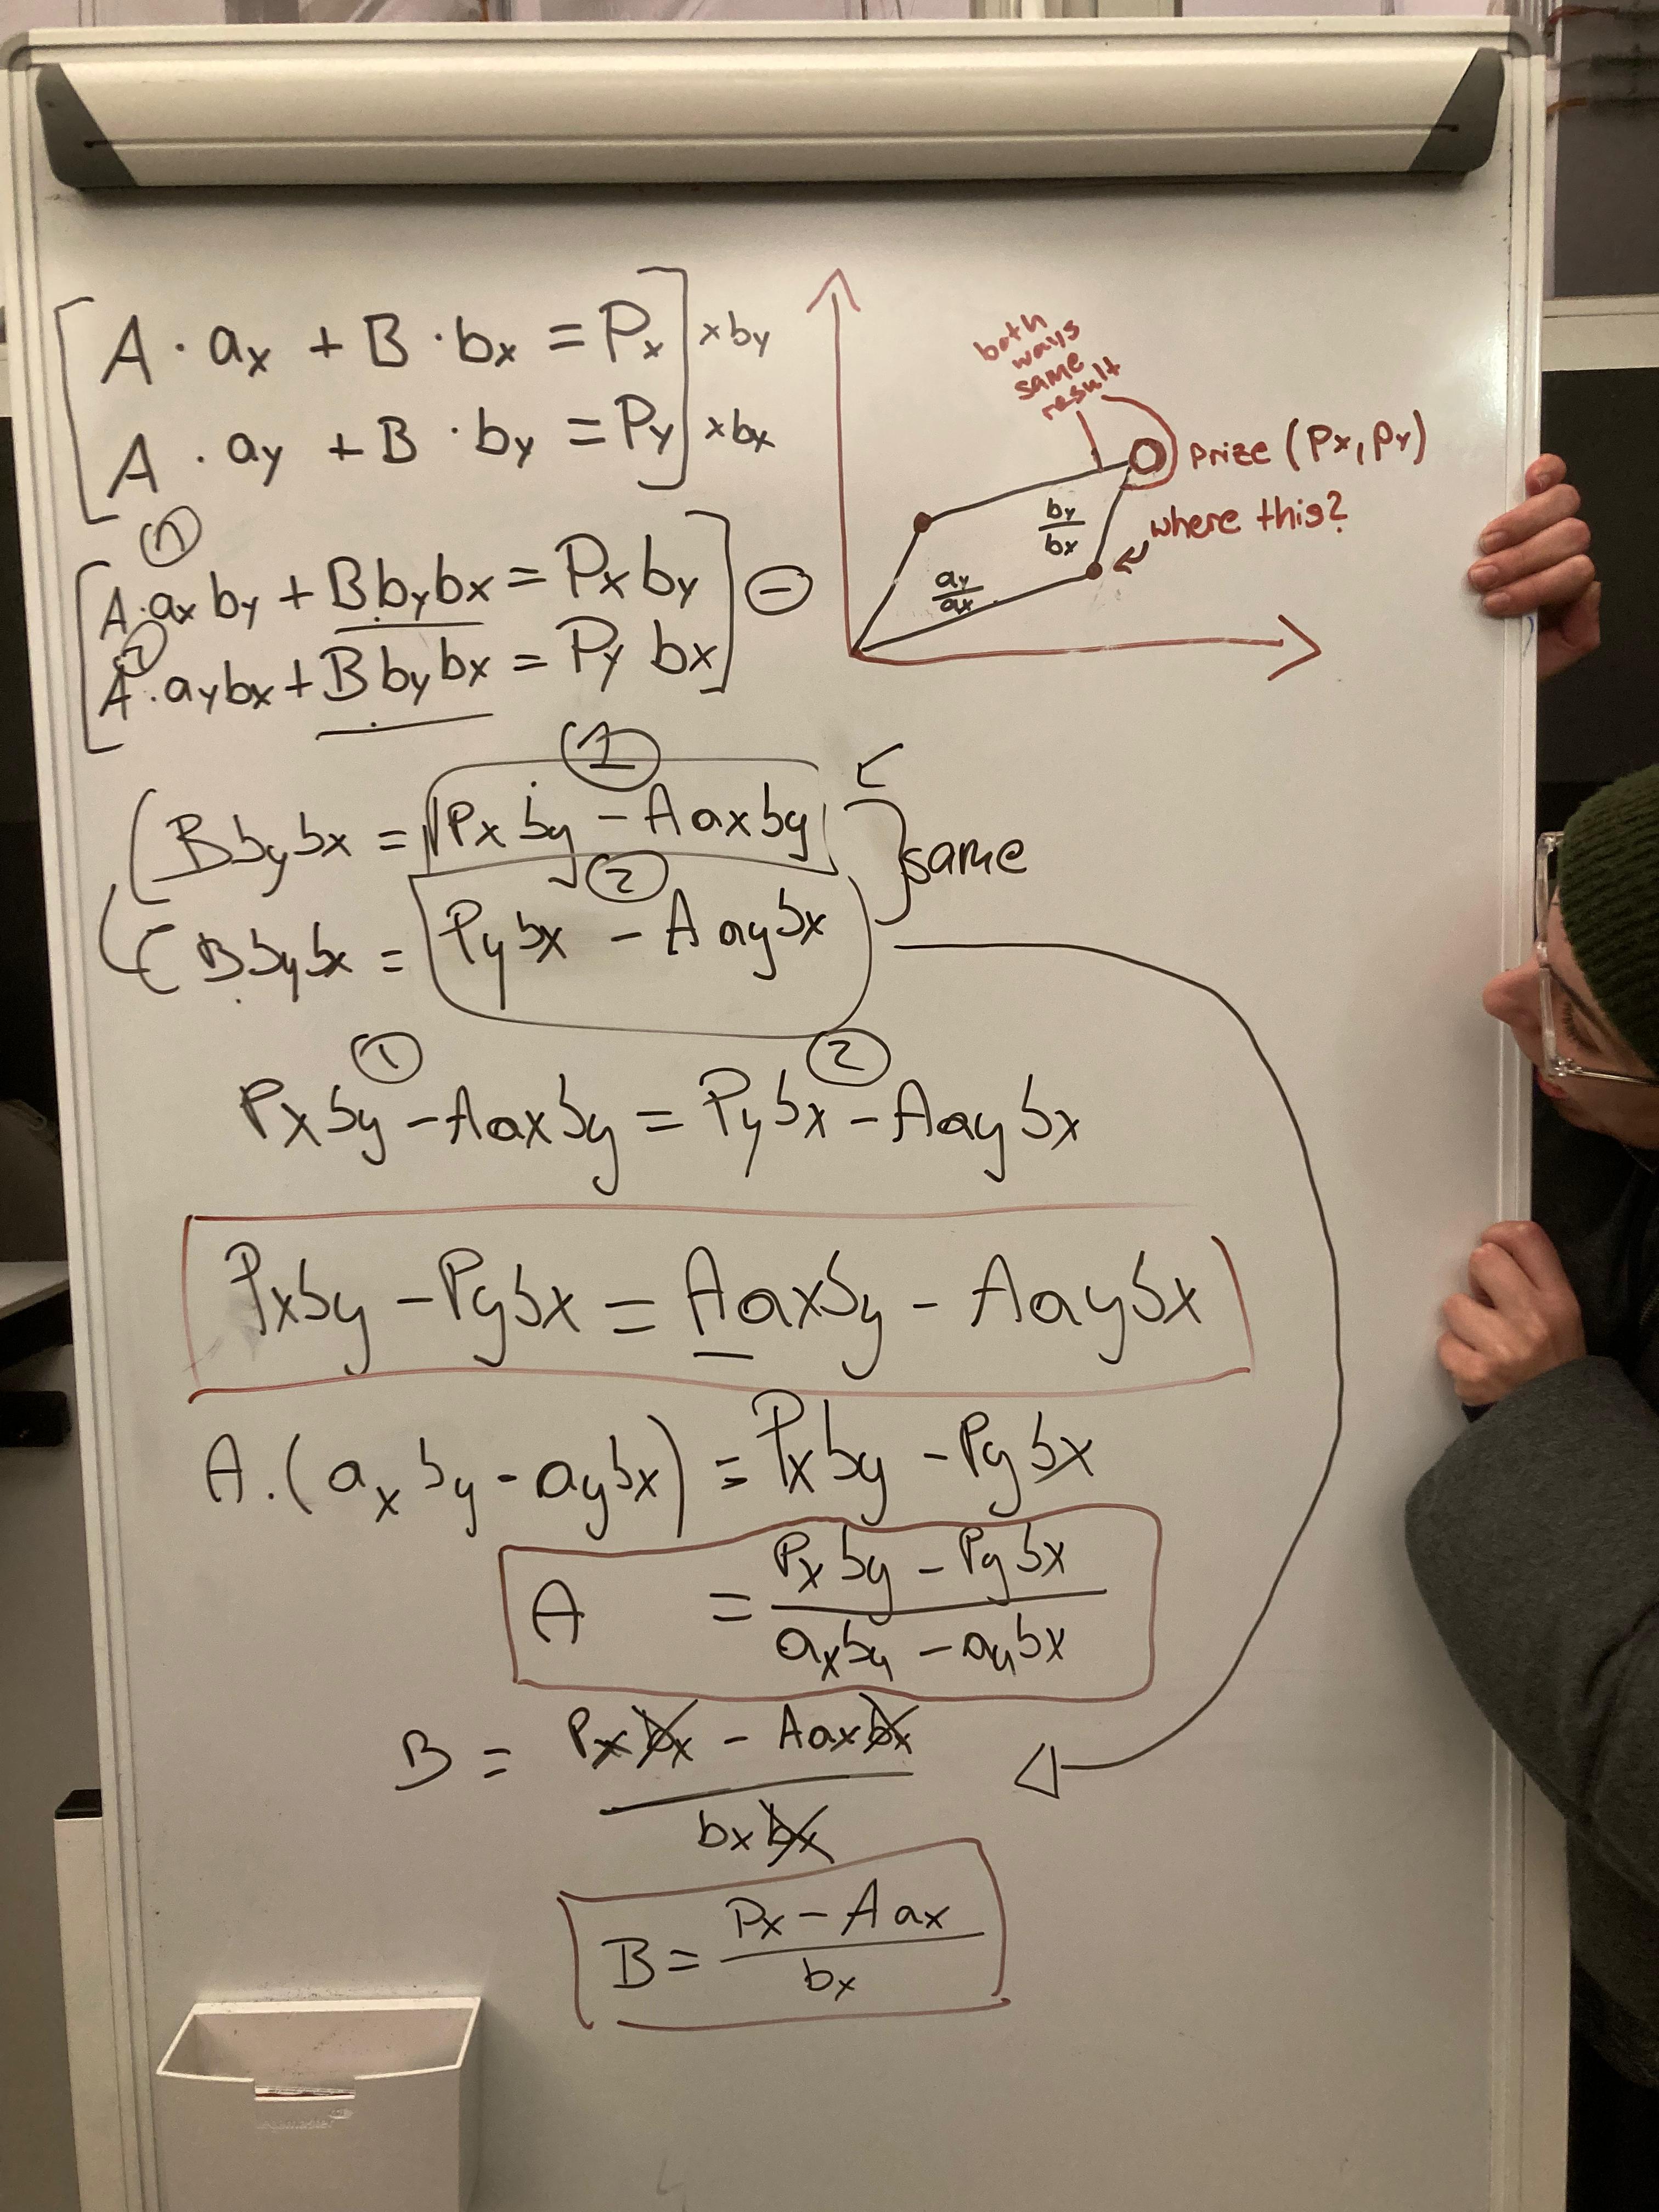 A · ax + B · bx = Px ×by
A · ay + B · by = Py ×bx
both
ways
same
result
Prize (Px, Py)
where this?
by/bx
ay/ax
①
A·ax by + B by bx = Px by
②
A·ay bx + B by bx = Py bx
⊖
①
B by bx = Px by - A ax by
②
B by bx = Py bx - A ay bx
same
① ②
Px by - A ax by = Py bx - A ay bx
Px by - Py bx = A ax by - A ay bx
A.(ax by - ay bx) = Px by - Py bx
A = (Px by - Py bx)/(ax by - ay bx)
B = (Px bx - A ax bx)/(bx bx)
B = (Px - A ax)/bx